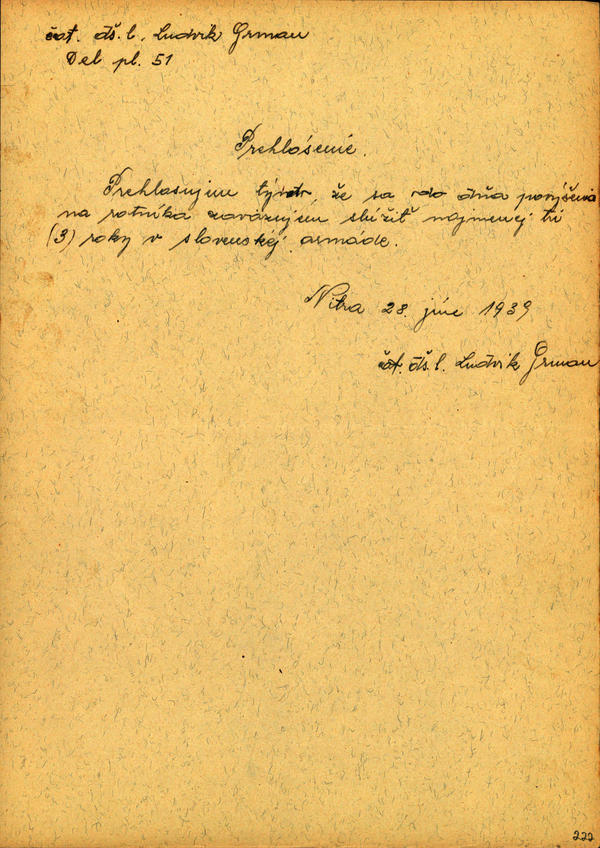 čat. dš. l. Ludvik Grman
Del pl. 51
Prehlásenie.
Prehlasujem týmto, že sa odo dňa povýšenia
na rotníka zaväzujem slúžiť najmenej tri
(3) roky v slovenskej armáde.
Nitra 28. júne 1939
čat. dš. l. Ludvik Grman
222